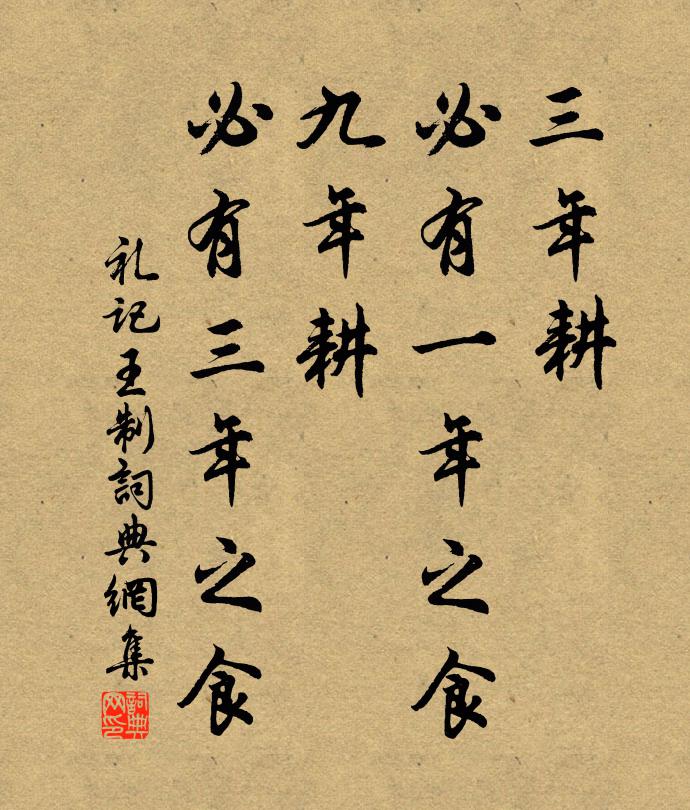 三年耕
必有一年之食
九年耕
必有三年之食
礼记王制詞典網集
詞典
网印